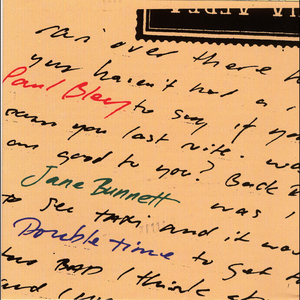 ran over there
you haven't had a
Paul Bley to say if you
saw you last nite. wa
am good to you? Back
Jane Bunnett was i
to see TAKI and it wa
Double time to get
this BAD I think
and I